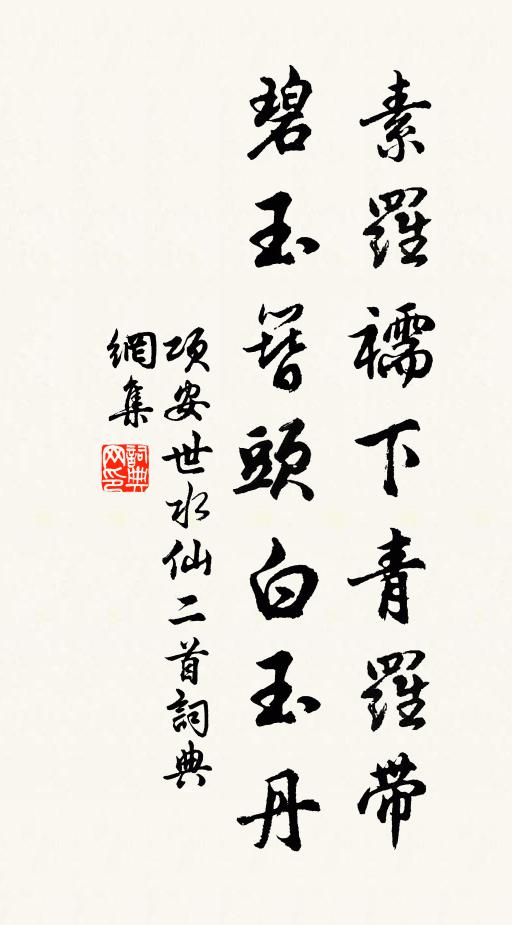 素羅襦下青羅帶
碧玉簪頭白玉丹
項安世水仙二首詞典
網集
詞典網印